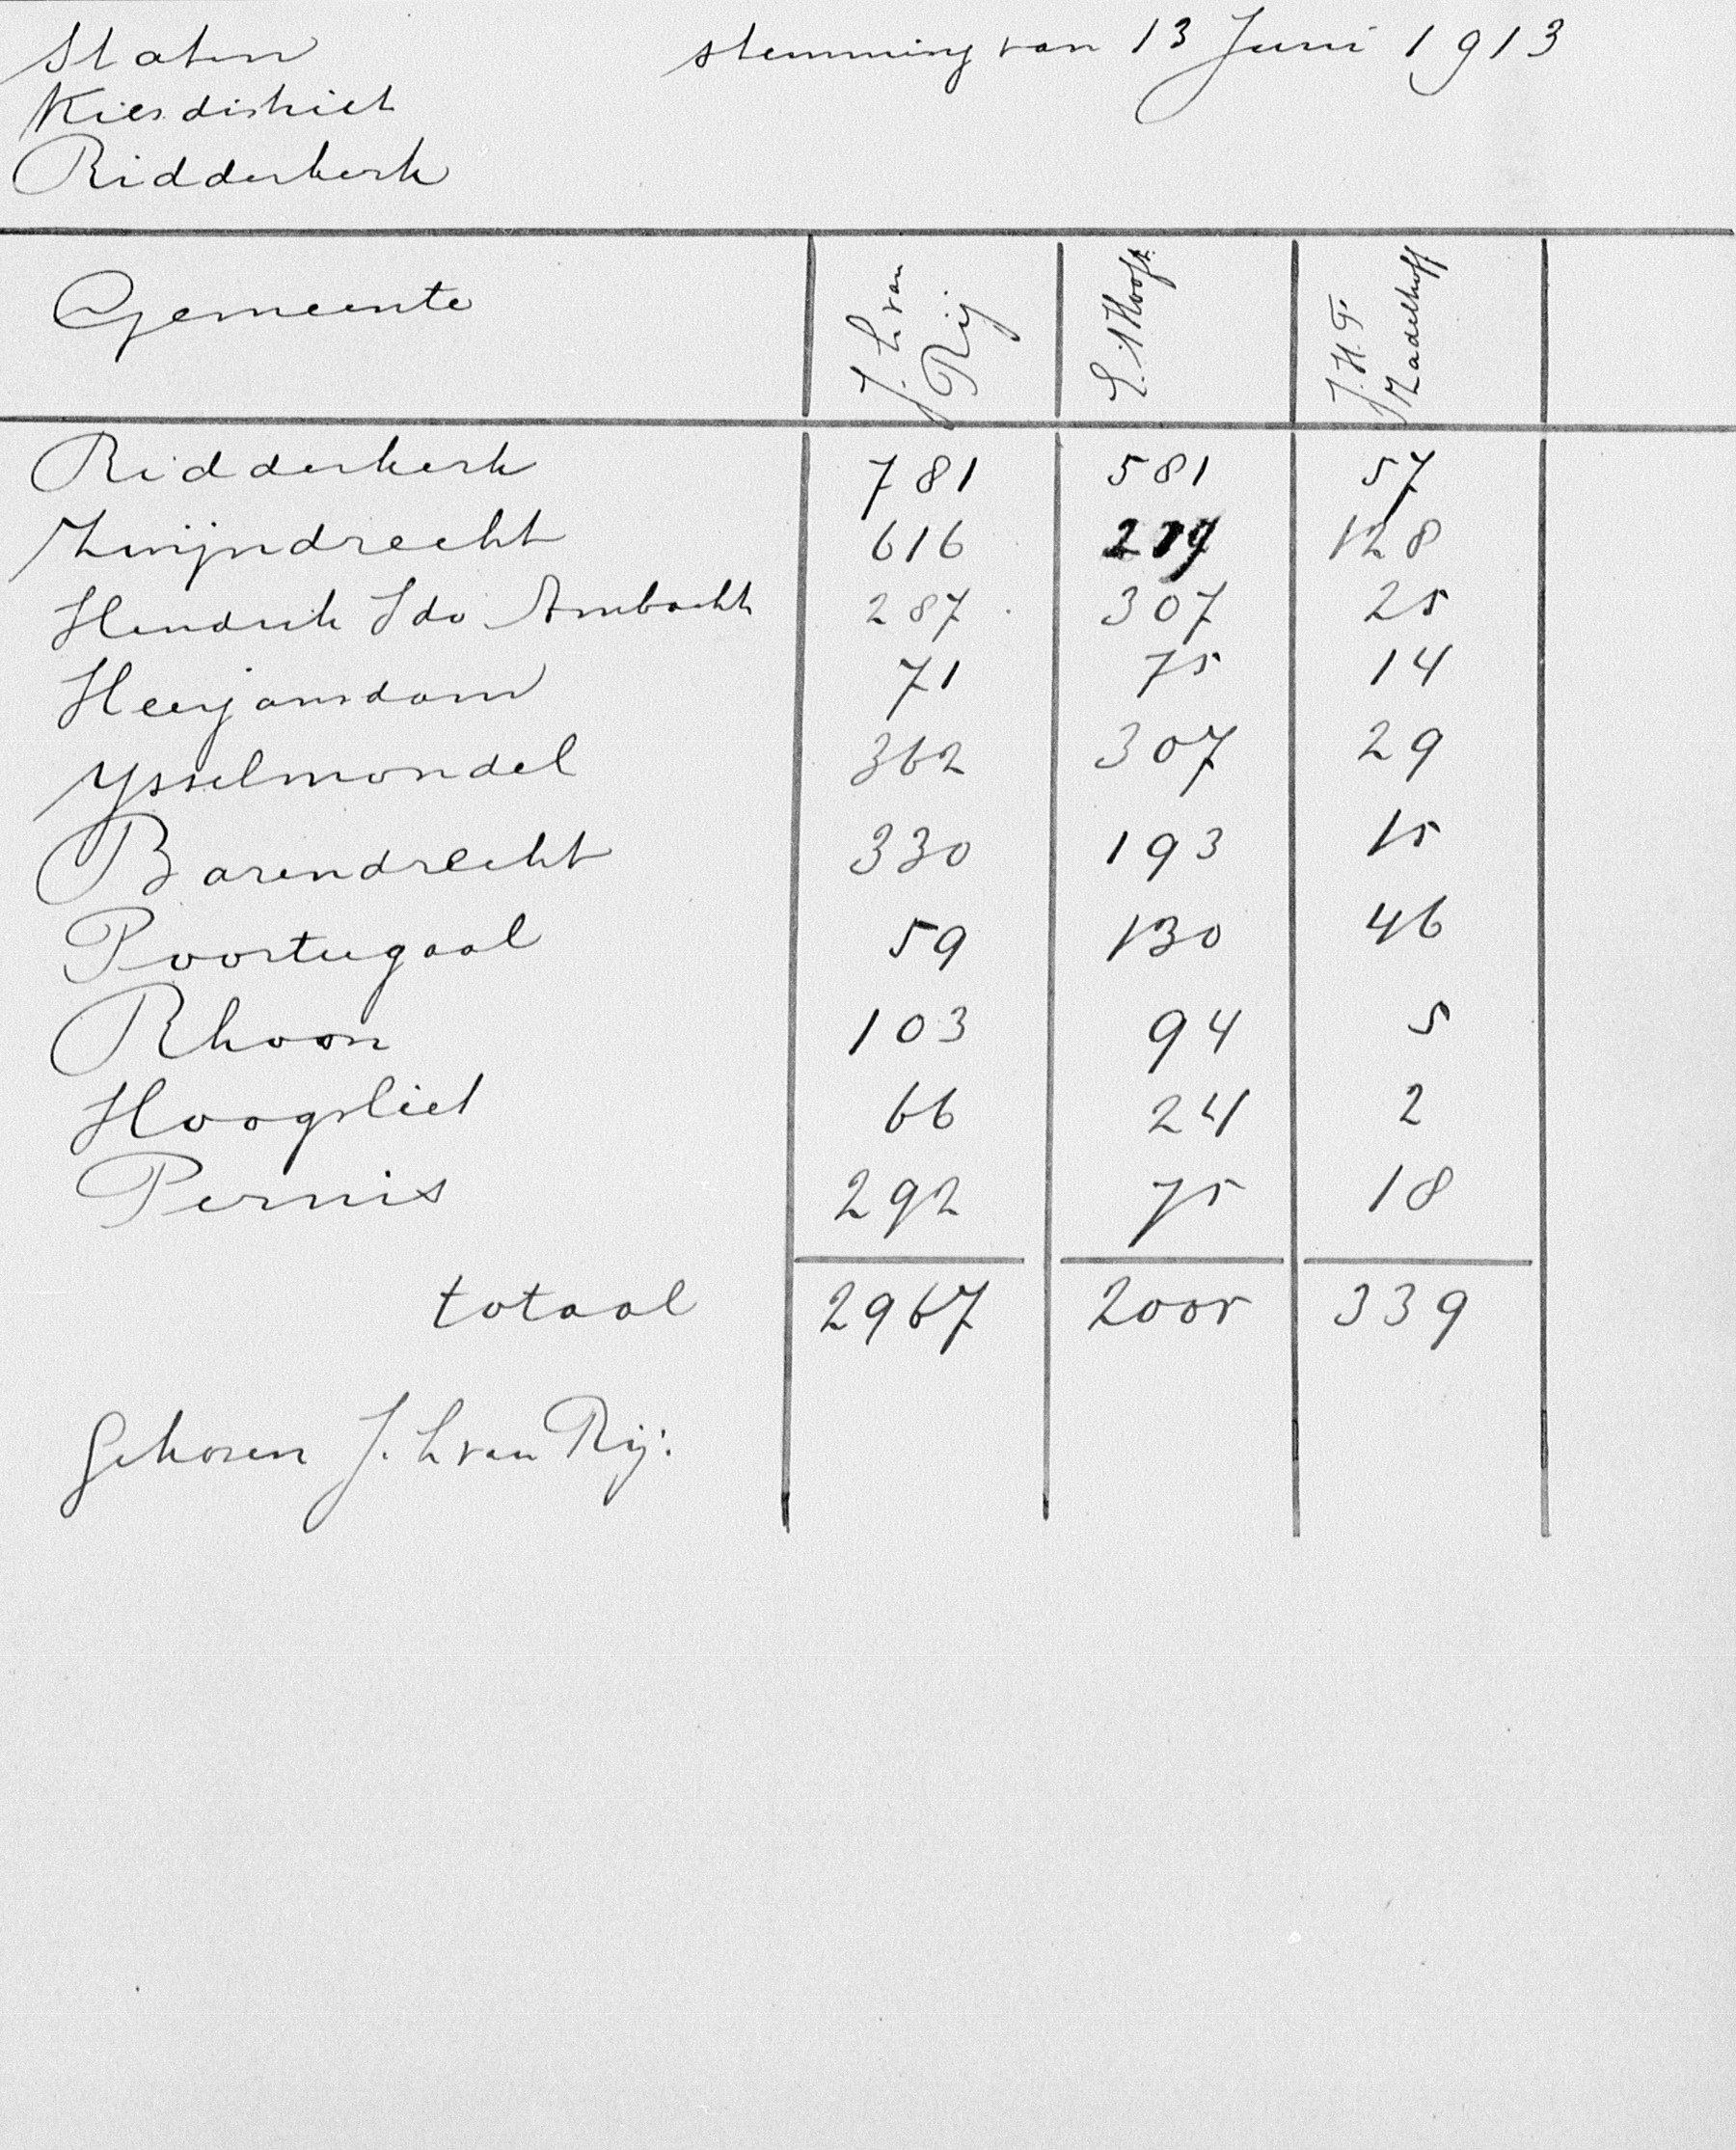 Staten stemming van 13 Juni 1913
Kiesdistrict
Ridderkerk
Gemeente J. L. van Rij E. 't Hooft J. H. F. Zadelhoff
Ridderkerk 781 581 57
Zwijndrecht 616 219 128
Hendrik Ido Ambacht 287 307 25
Heerjansdam 71 75 14
Ysselmondel 362 307 29
Barendrecht 330 193 15
Poortugaal 59 130 46
Rhoon 103 94 5
Hoogvliet 66 24 2
Pernis 292 75 18
totaal 2967 2005 339
Gekozen J. L. van Rij.